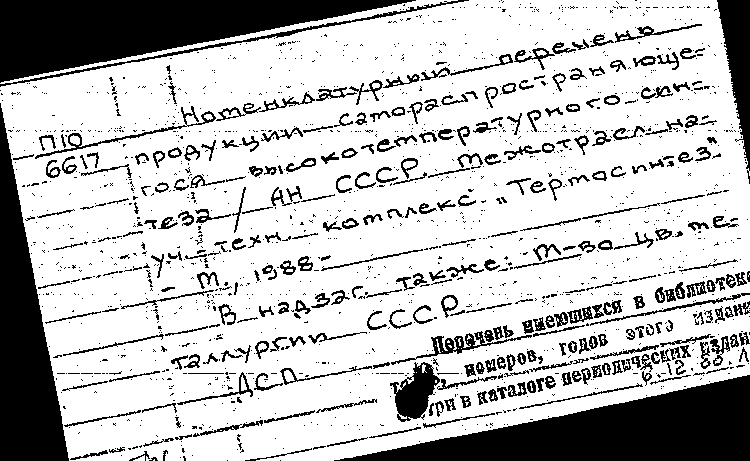 Номенклатурный перечень
П10
6617
продукции самораспространяюще-
гося высокотемпературного син-
теза / АН СССР. Межотрасл. на-
уч.-техн. комплекс "Термосинтез".
- М., 1988 -
В надзаг. также: М-во цв. ме-
таллургии СССР
ДСП
Перечень имеющихся в библиотеке
номеров, годов этого издани
три в каталоге периодических издан
6.12.88